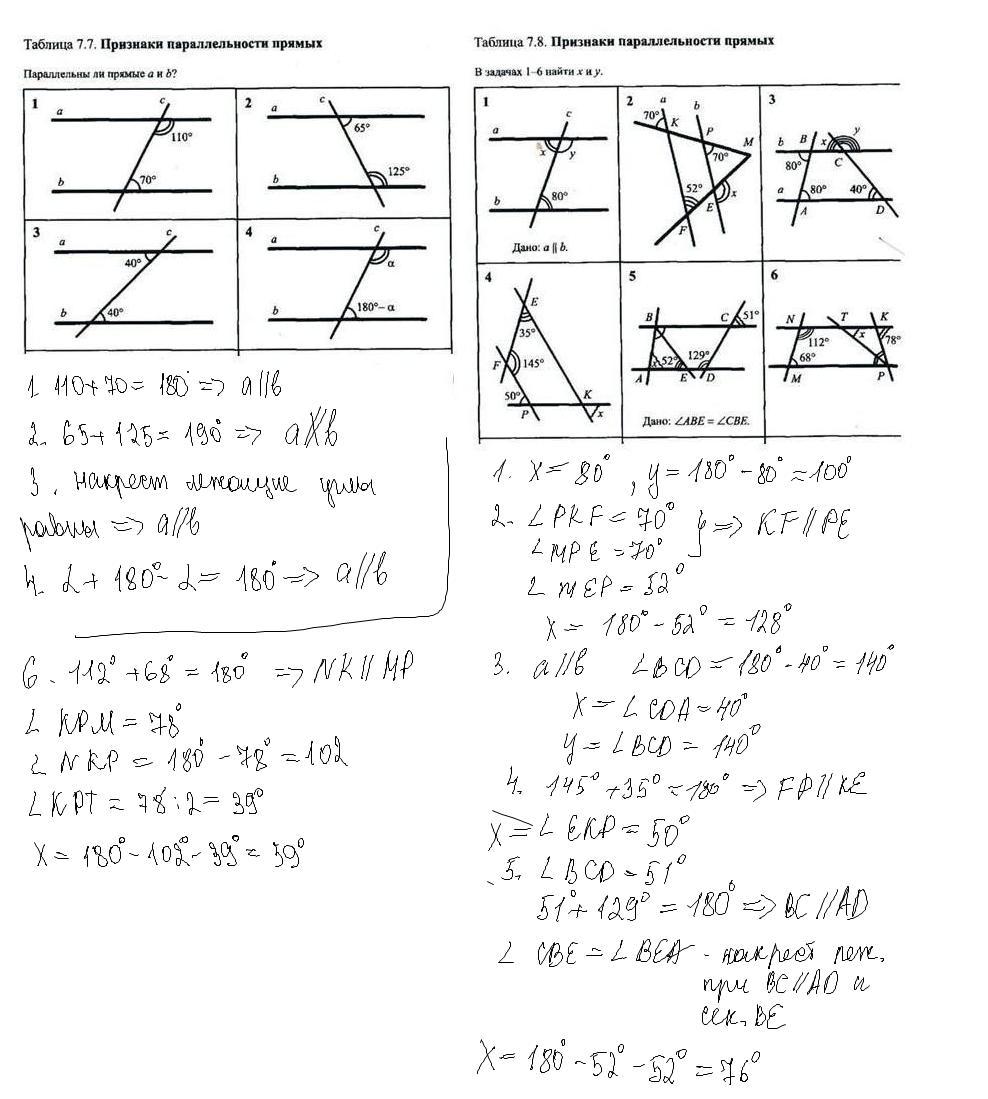 Таблица 7.7. Признаки параллельности прямых
Параллельны ли прямые a и b?
1
a
c
110°
b
70°
2
a
c
65°
b
125°
3
a
c
40°
b
40°
4
a
c
α
b
180°−α
1. 110+70= 180° => a//b
2. 65+125= 190° => a∦b
3. накрест лежащие углы
равны => a//b
4. α+ 180°- α= 180° => a//b
6. 112° +68° = 180° => NK // MP
∠ KPM = 78°
∠ NKP = 180° - 78° = 102
∠ KPT = 78° : 2 = 39°
x= 180° - 102° - 39° = 39°
Таблица 7.8. Признаки параллельности прямых
В задачах 1–6 найти x и y.
1
c
a
x
y
b
80°
Дано: a || b.
2
a
b
70°
K
P
M
70°
52°
x
E
F
3
b
B
x
y
80°
C
a
80°
40°
A
D
4
E
35°
F
145°
50°
K
P
x
5
B
C
51°
x
52°
129°
A
E
D
Дано: ∠ABE = ∠CBE.
6
N
T
K
112°
x
78°
68°
M
P
1. x = 80° , y = 180° - 80° = 100°
2. ∠ PKF = 70° } => KF // PE
∠ MPE = 70°
∠ MEP = 52°
x = 180° - 52° = 128°
3. a//b ∠ BCD = 180° - 40° = 140°
x = ∠ CDA = 40°
y = ∠ BCD = 140°
4. 145° + 35° = 180° => FP // KE
x = ∠ EKP = 50°
5. ∠ BCD = 51°
51° + 129° = 180° => BC // AD
∠ CBE = ∠ BEA - накрест леж.
при BC // AD и
сек. BE
x = 180° - 52° - 52° = 76°